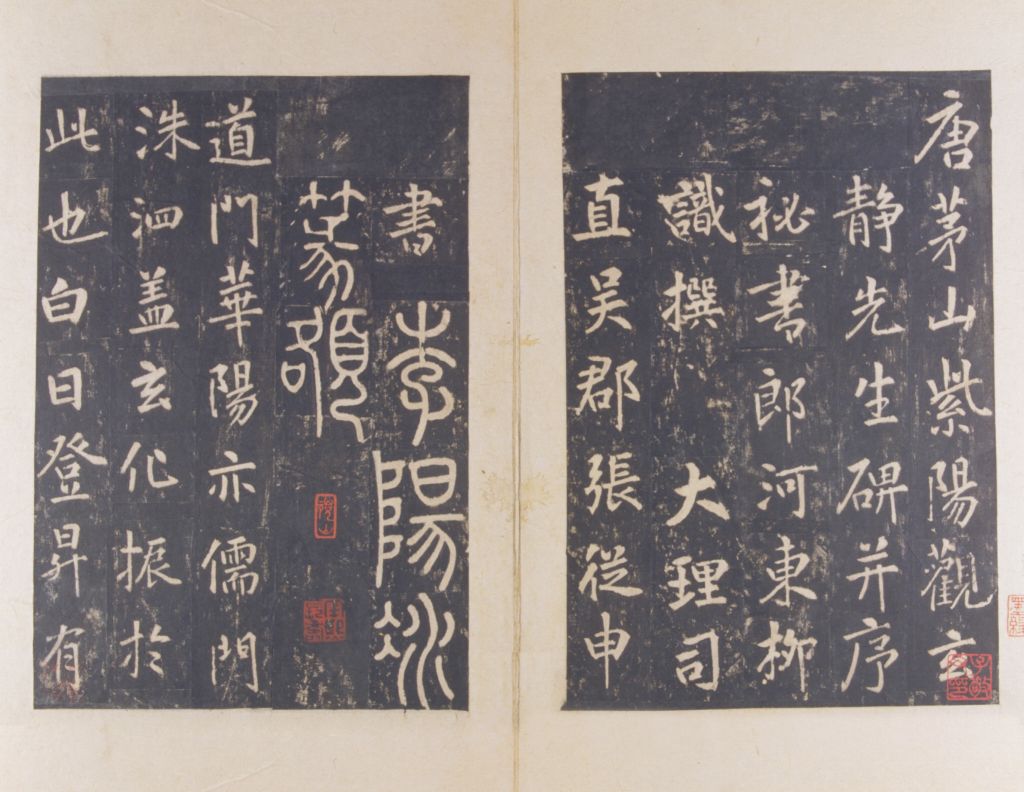 唐茅山紫陽觀玄
靜先生碑并序
祕書郎河東柳
識撰 大理司
直吴郡張從申
書 李陽冰
篆額
道門華陽亦儒門
洙泗盖玄化振於
此也白日登昇有